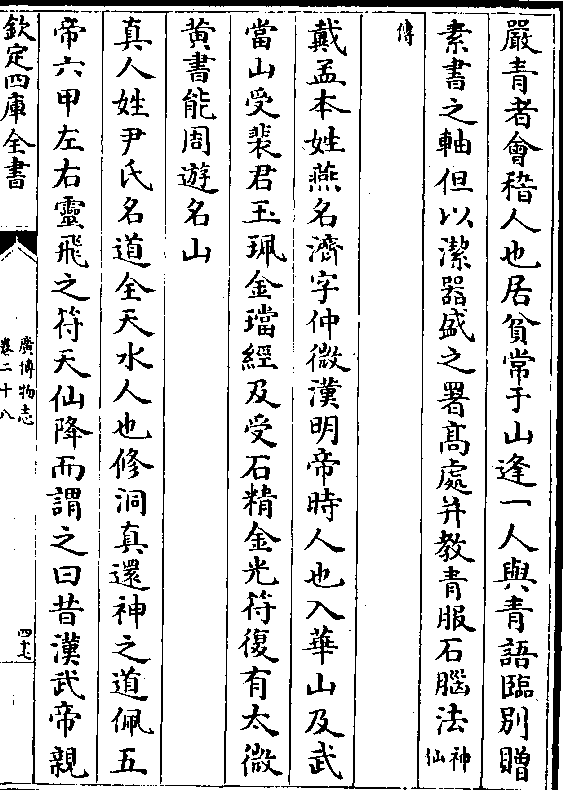 嚴青者會稽人也居貧常于山逢一人與青語臨別贈
素書之軸但以潔器盛之署髙處并教青服石腦法神仙
傳
戴孟本姓燕名濟字仲微漢明帝時人也入華山及武
當山受裴君玉珮金璫經及受石精金光符復有太微
黄書能周遊名山
真人姓尹氏名道全天水人也修洞真還神之道佩五
帝六甲左右靈飛之符天仙降而謂之曰昔漢武帝親
欽定四庫全書
廣博物志
卷二十八
四十七